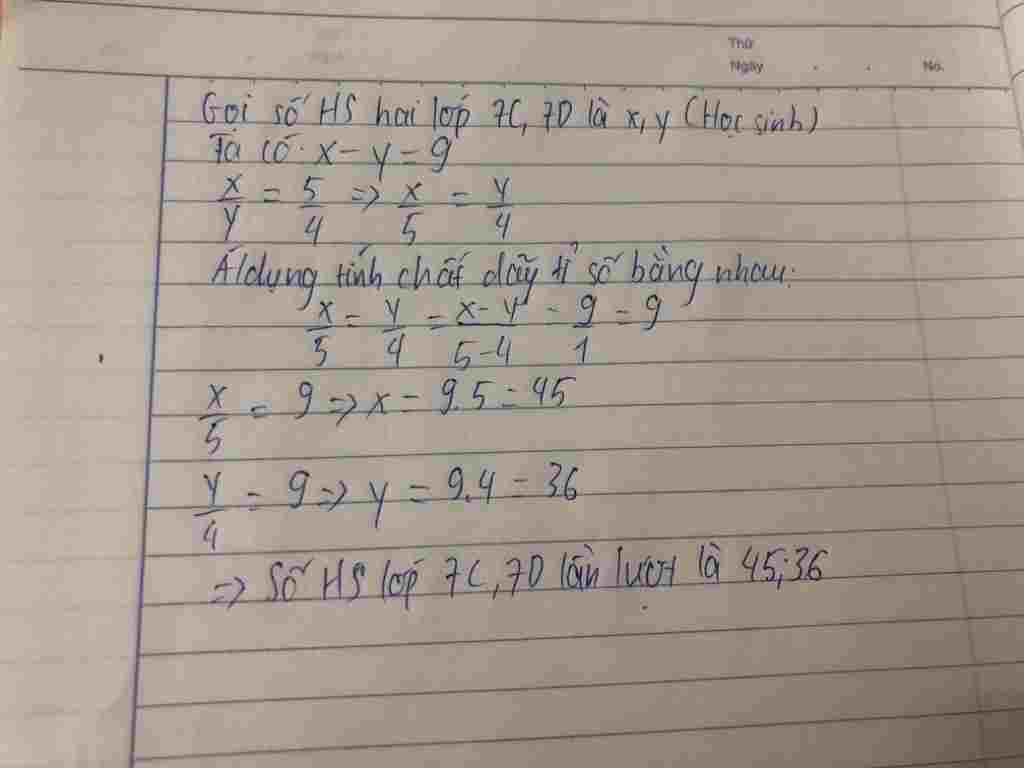 Thứ
Ngày . . No.
Gọi số HS hai lớp 7C, 7D là x, y (Học sinh)
Ta có: x - y = 9
x/y = 5/4 => x/5 = y/4
Áldụng tính chất dãy tỉ số bằng nhau:
x/5 = y/4 = x-y/5-4 = 9/1 = 9
x/5 = 9 => x = 9.5 = 45
y/4 = 9 => y = 9.4 = 36
=> Số HS lớp 7C, 7D lần lượt là 45; 36